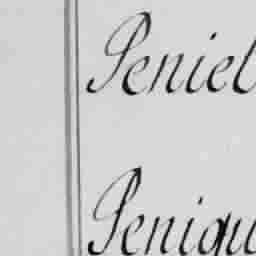 Peniel
Peniqu